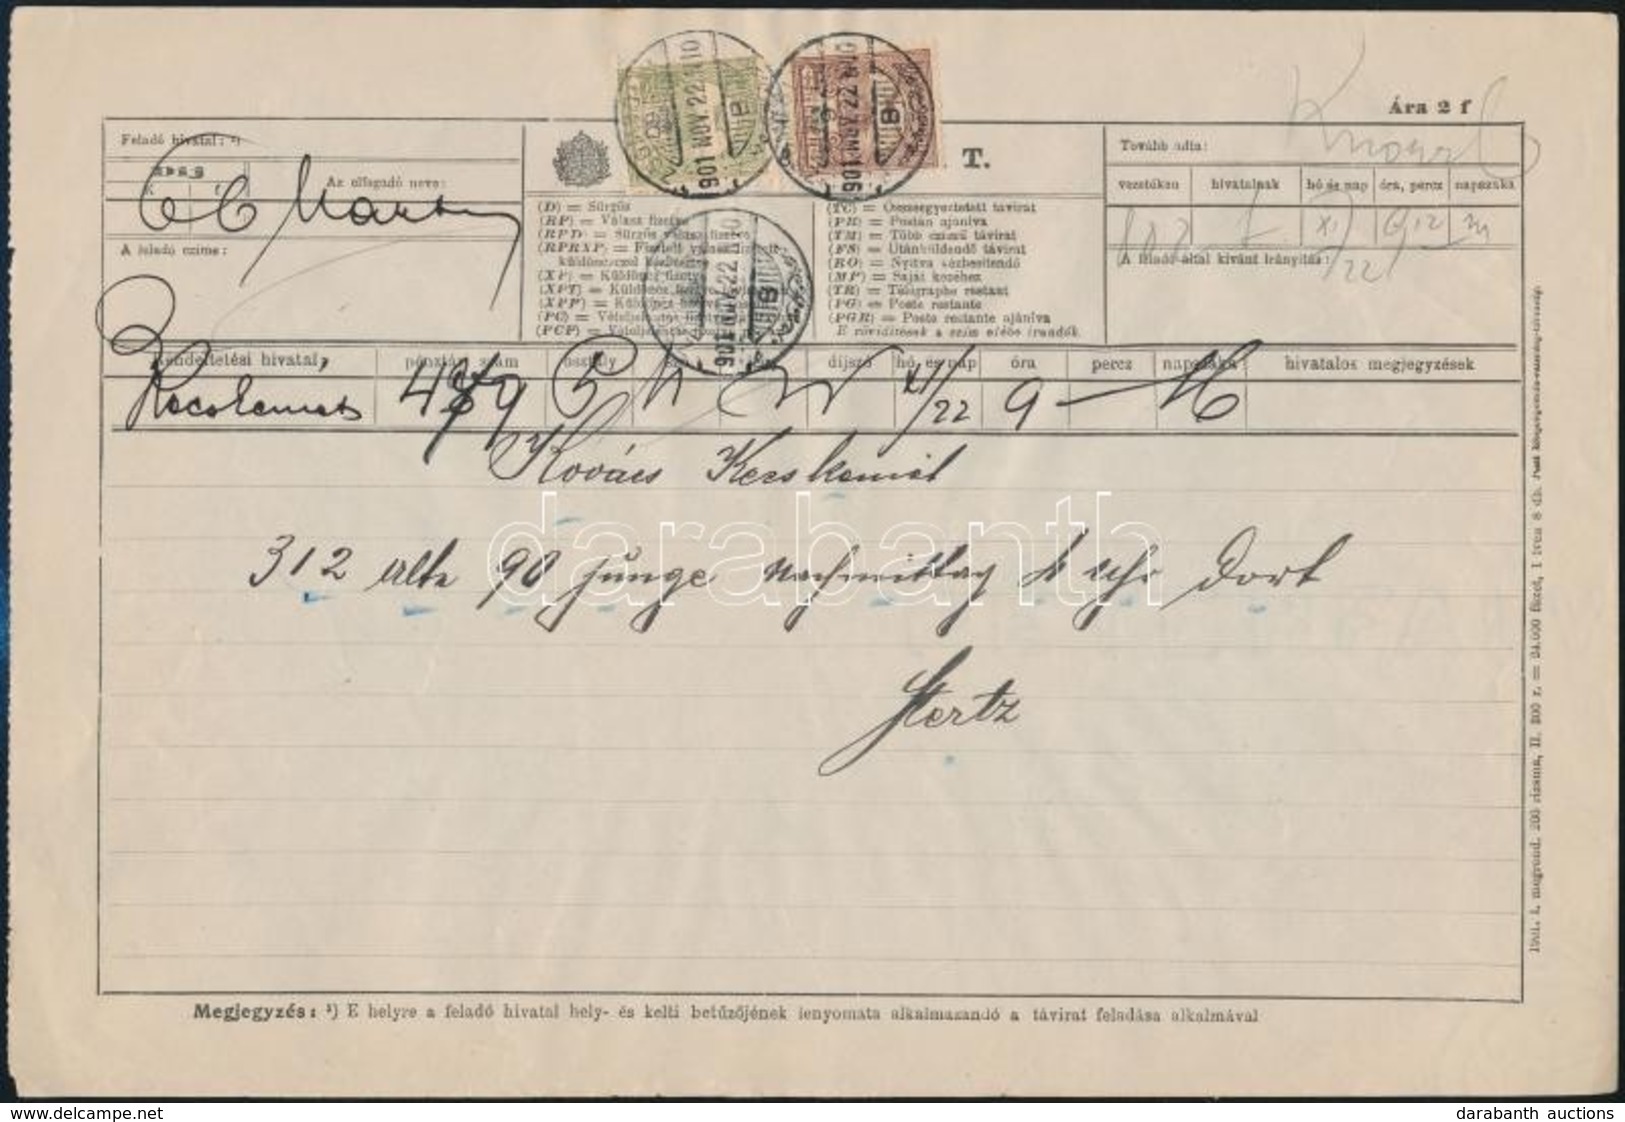 Ára 2 f
Feladó hivatal: ¹)
Az elfogadó neve:
A feladó czime:
T.
(D) = Sürgős
(RP) = Válasz fizetve
(RPD) = Sürgős válasz fizetve
(RPRXP) = Fizetett válasz fizetett
küldönczczel kézbesítve
(XP) = Küldöncz fizetve
(XPT) = Küldöncz fizetve
(XPP) = Küldöncz fizetve
(PC) = Vételjelentés
(PCP) = Vételjelentés
(TC) = Összeegyeztetett távirat
(PR) = Postán ajánlva
(TM) = Több czimű távirat
(FS) = Utánküldendő távirat
(RO) = Nyitva kézbesítendő
(MP) = Saját kezéhez
(TR) = Télégraphe restant
(PG) = Poste restante
(PGR) = Poste restante ajánlva
E rövidítések a szám elébe irandók.
Tovább adta:
vezetéken hivatalnak hó és nap óra, percz napszaka
XI/22 9 12
A feladó által kivánt irányítás:
901 NOV. 22
901 NOV. 22
901 NOV. 22
Rendeltetési hivatal, pénztári szám osztály díjszó hó, és nap óra percz napszaka hivatalos megjegyzések
Kecskemet XI/22 9
Kovács Kecskemét
312 alte 90 junge Nachmittag 4 uhr dort
Hertz
Megjegyzés: ¹) E helyre a feladó hivatal hely- és kelti betűzőjének lenyomata alkalmazandó a távirat feladása alkalmával
darabanth
delcampe.net
darabanth auctions